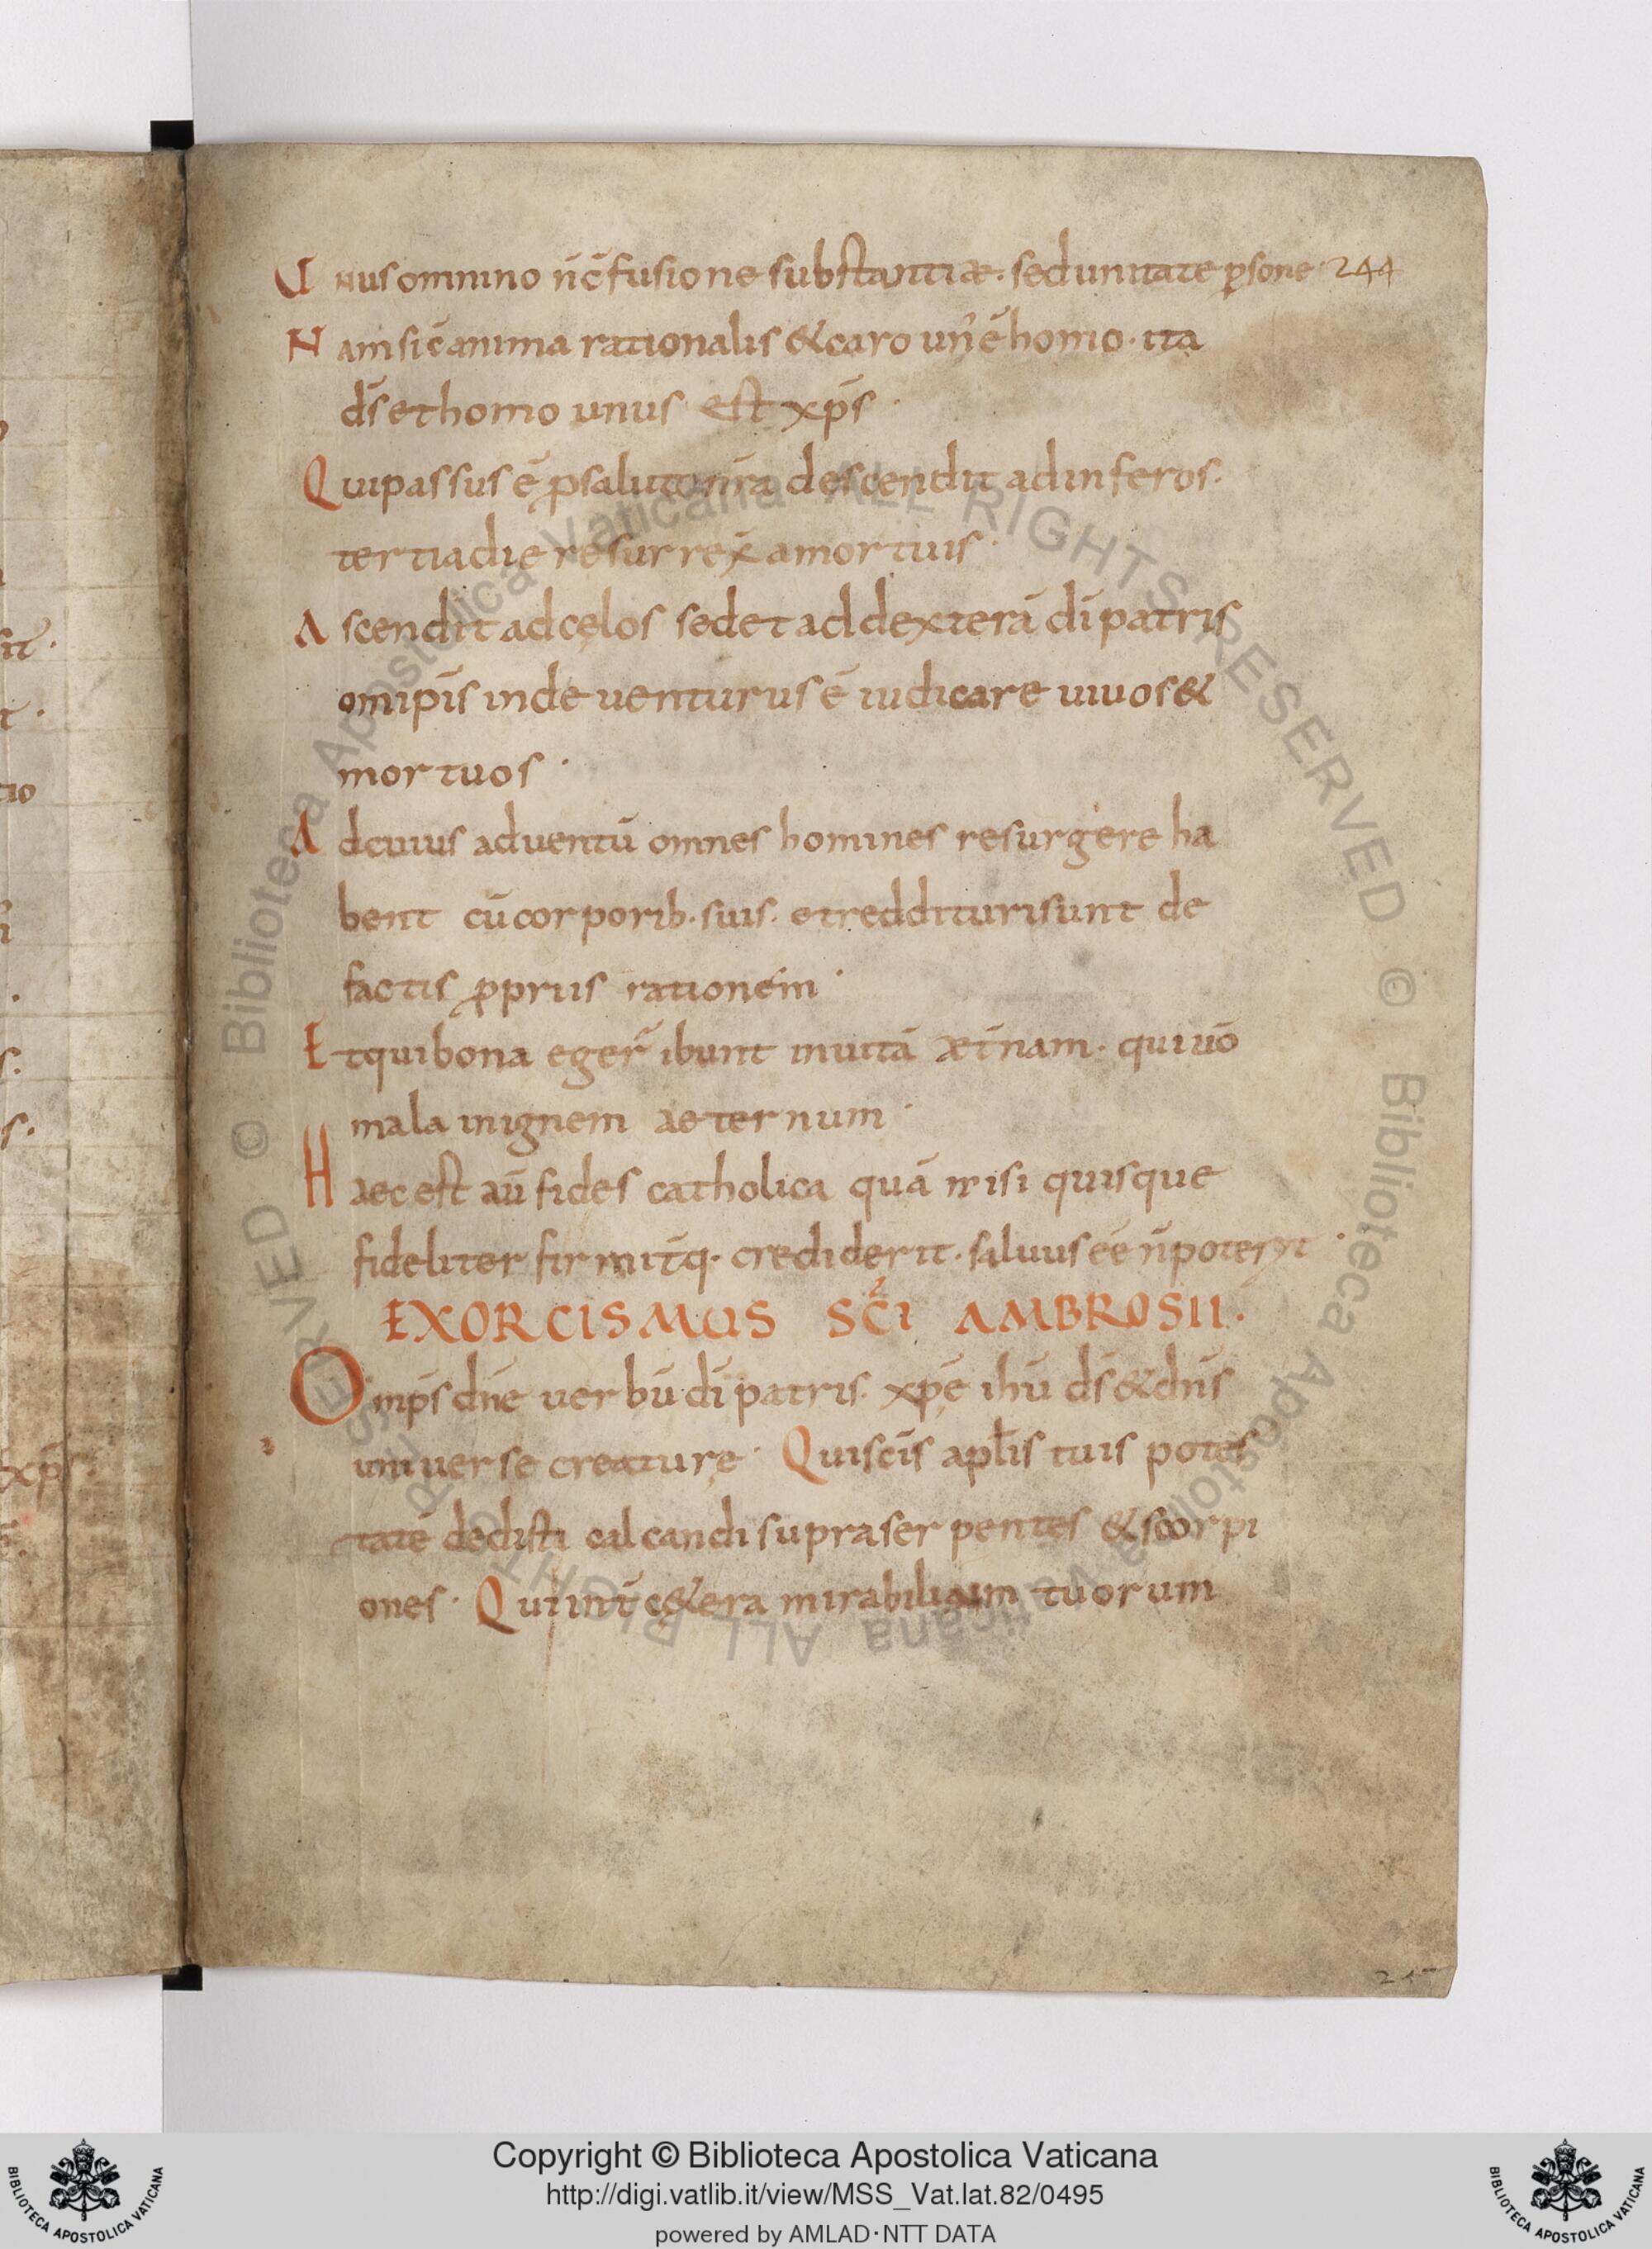 Unus omnino n̄ c̄fusione substantiæ. sed unitate ꝑsone 244
Nam sic̄ anima rationalis & caro un' ē homo. ita
d̄s et homo unus est xp̄s
Qui passus ē ꝓ salute nr̄a descendit ad inferos.
tertia die resurrex̄ a mortuis.
Ascendit ad cęlos sedet ad dexterā dī patris
omīpīs inde uenturus ē iudicare uiuos &
mortuos.
Ad cuius aduentū omnes homines resurgere ha
bent cū corporib. suis. et reddituri sunt de
factis ꝓpriis rationem.
Et qui bona eger̄ ibunt in uitā æt̄nam. qui uō
mala in ignem aeternum.
Haec est aū fides catholica quā nisi quisque
fideliter firmit̄q. crediderit. saluus eē n̄ poterit.
EXORCISMUS SC̄I AMBROSII.
Omp̄s dn̄e uerbū dī patris. xp̄e ihū d̄s & dn̄s
uniuerse creature. Qui sc̄is apl̄is tuis potes
tatē dedisti calcandi supra serpentes & scorpi
ones. Qui int̄ c&era mirabilium tuorum
Copyright © Biblioteca Apostolica Vaticana
http://digi.vatlib.it/view/MSS_Vat.lat.82/0495
powered by AMLAD·NTT DATA
BIBLIOTECA APOSTOLICA VATICANA
BIBLIOTECA APOSTOLICA VATICANA
© Biblioteca Apostolica Vaticana ALL RIGHTS RESERVED © Biblioteca Apostolica Vaticana ALL RIGHTS RESERVED